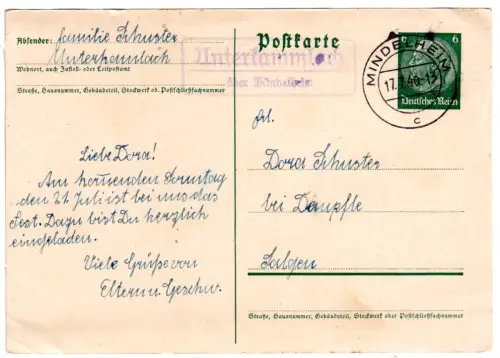 Absender: Familie Schuster
Unterkamlach
Wohnort, auch Zustell- oder Leitpostamt
Straße, Hausnummer, Gebäudeteil, Stockwerk od. Postschließfachnummer
Unterkammlach
über Mindelheim
Postkarte
6
Deutsches Reich
MINDELHEIM
17.7.40-13
c
Liebe Dora!
Am kommenden Sonntag
den 21. Juli ist bei uns das
Fest. Dazu bist Du herzlich
eingeladen.
Viele Grüße von
Eltern u. Geschw.
Frl.
Dora Schuster
bei Dempfle
Salgen
Straße, Hausnummer, Gebäudeteil, Stockwerk oder Postschließfachnummer